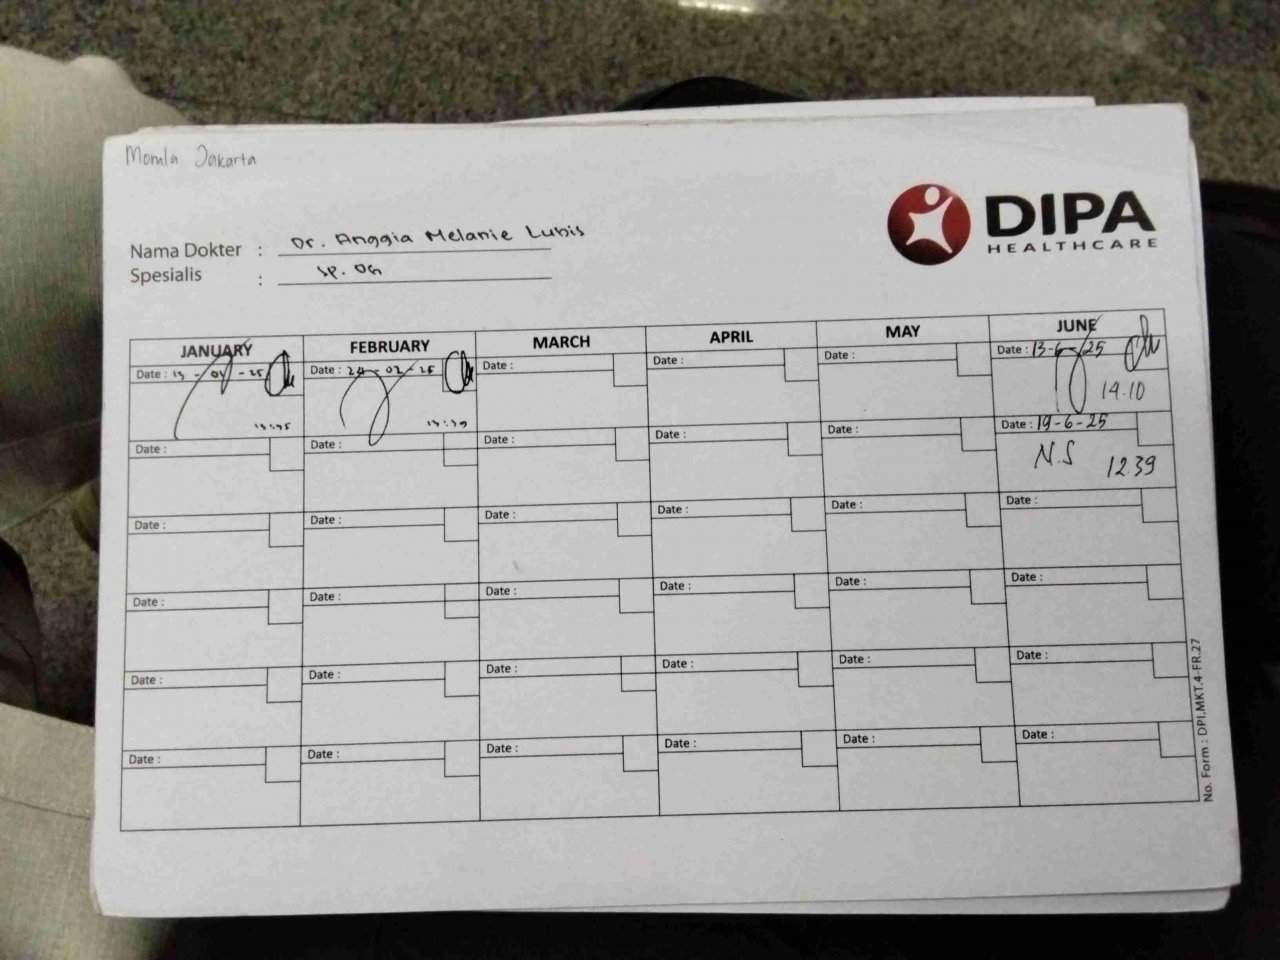 Momla Jakarta
DIPA
HEALTHCARE
Nama Dokter : Dr. Anggia Melanie Lubis
Spesialis : Sp. OG
JANUARY FEBRUARY MARCH APRIL MAY JUNE
Date : 13 - 01 - 25 Date : 24 - 02 - 25 Date : Date : Date : Date : 13-6-25
14.10
Date : Date : Date : Date : Date : Date : 19-6-25
N.S 12.39
Date : Date : Date : Date : Date : Date :
Date : Date : Date : Date : Date : Date :
Date : Date : Date : Date : Date : Date :
Date : Date : Date : Date : Date : Date :
No. Form : DPI.MKT.4-FR.27